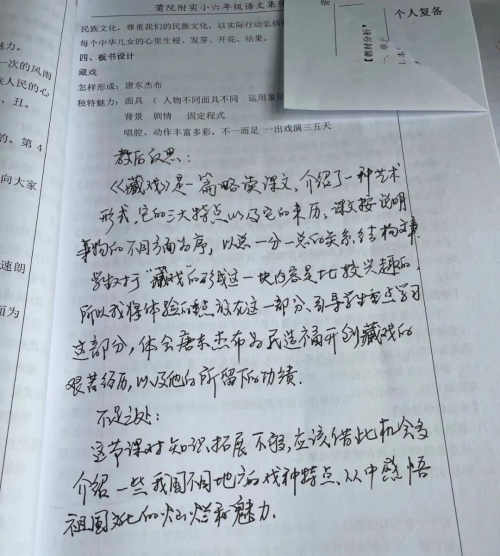 莆院附实小六年级语文集体
民族文化，尊重我们的民族文化，以实际行动弘扬
每个中华儿女的心里生根、发芽、开花、结果。
四、板书设计
藏戏
怎样形成：唐东杰布
独特魅力：面具（人物不同面具不同 运用象征
背景 剧情 固定程式
唱腔、动作丰富多彩，不一而足 一出戏演三五天
个人复备
【教材分析】
一、单元
1.本
魅力。
一次的风雨
族人民的心
、丑。
的。第 4
向大家
速朗
面为
教后反思：
《藏戏》是一篇略读课文，介绍了一种艺术
形式，它的三大特点以及它的来历。课文按说明
事物的不同方面为序，以总一分一总的关系结构文章.
学生对于"藏戏的形成这一块内容是比较兴趣的.
所以我将体验的重点放在这一部分、引导学生重点学习
这部分，体会唐东杰布为民造福开创藏戏的
艰苦经历，以及他的所留下的功绩.
不足之处：
这节课对知识拓展不够，应该借此机会多
介绍一些我国不同地方的戏种特点、从中感悟
祖国文化的灿烂和魅力.